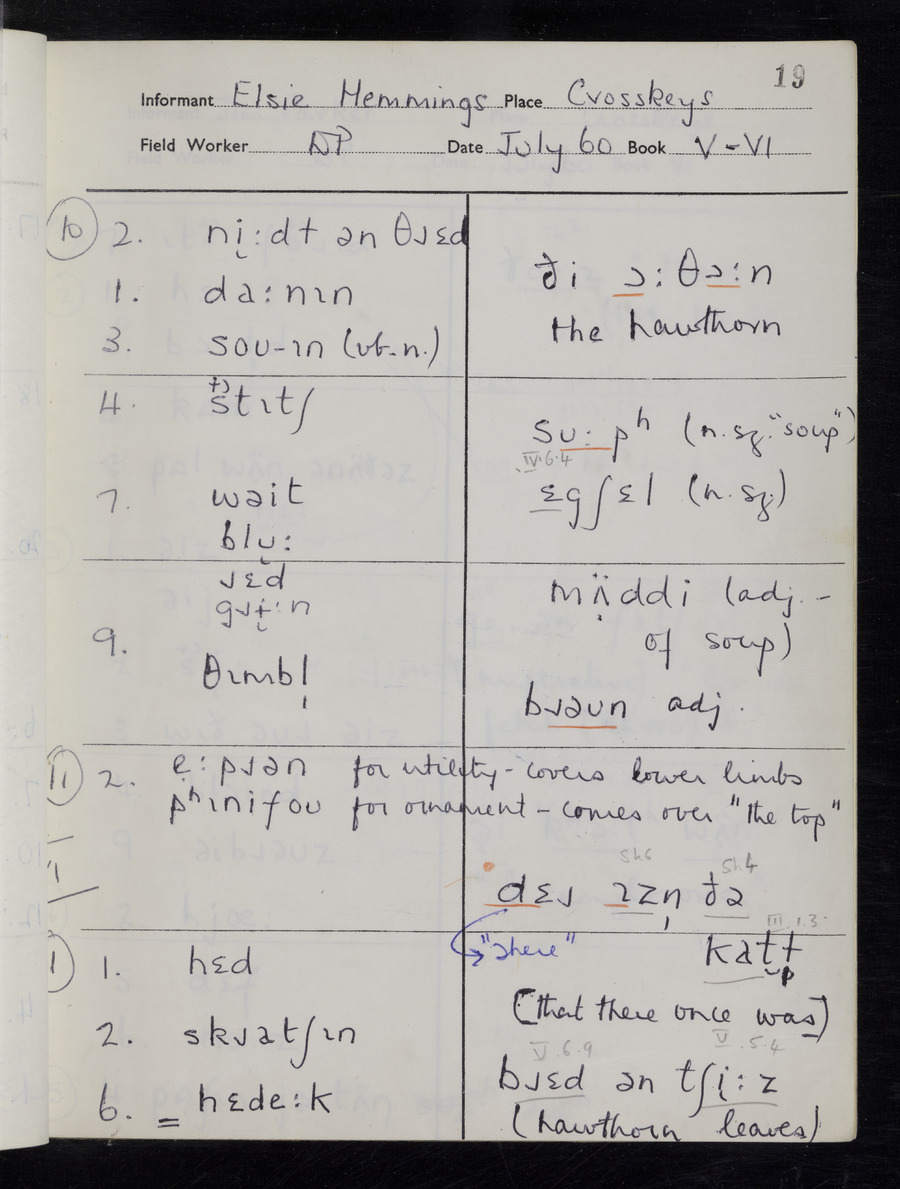 19
Informant Elsie Hemmings Place Crosskeys
Field Worker DP Date July 60 Book V-VI
10 2. ni̯:dt ən θɹɛd
1. da:nɪn
3. soʊ-ɪn (vb.n.)
4. stɪtʃ
7. wait
blu̯:
ɹɛd
gɹɨ̯:n
9. θɪmbl̩
ði ɔ:θɔ:n
the hawthorn
su:pʰ (n.sg. "soup")
IV.6.4
ɛgʃɛl (n.sg)
mʌ̈ddi (adj. -
of soup)
bɹəun adj.
11 2. e̞:pɹən for utility - covers lower limbs
pʰɪnifoʊ for ornament - comes over "the top"
VI
Sh6 Sh4
dɛɹ ɪzn̩ ðə
"there"
III.1.3
katt
(that there once was)
1 1. hɛd
2. skɹatʃɪn
6. = hɛde:k
V.6.9 V.5.4
bɹɛd ən tʃi̯:z
(hawthorn leaves)